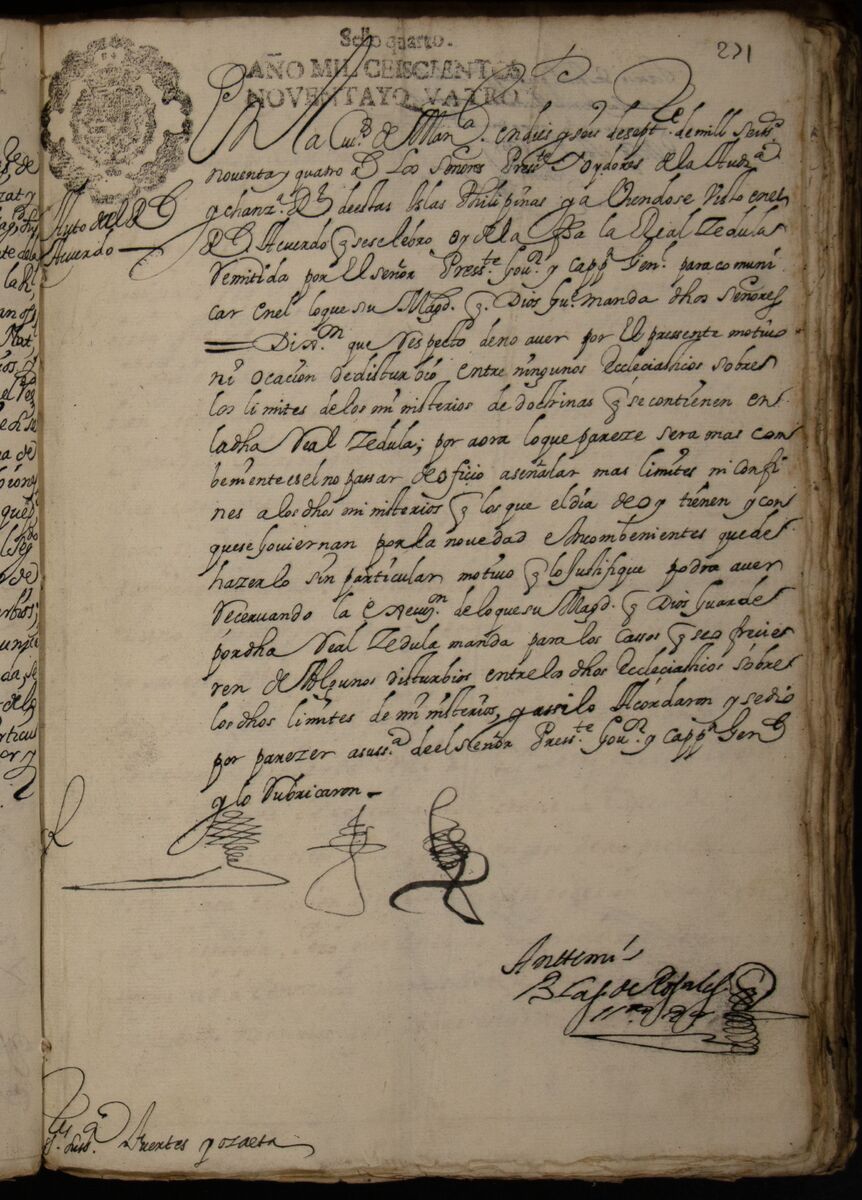 Sello quarto.
AÑO MIL. CEISCIENTOS
NOVENTAYQVATRO
271
En la Ciu.d de Man.a en dies y seis de sept.e de mill seis.s
noventa y quatro a.s Los señores Press.te y oydores de la Aud.a
y chanz.a R.l de estas Islas Philipinas y aviendose visto en el
R.l Acuerdo q se selebro oy dia la Real Zedula
Auto del R.l
Acuerdo
remitida por el señor Press.te Gov.or y capp.n Gen.l para comuni
car en el lo que su Mag.d q Dios gu.e manda dhos señores
Dix.on que respecto de no aver por el pressente motivo
ni ocacion de disturbio entre ningunos Ecleciasticos sobre
los limites de los ministerios de doctrinas q se contienen en
la dha Real Zedula; por aora lo que pareze sera mas con
beniente es el no passar de oficio a señalar mas limites ni confi
nes a los dhos ministerios q los que el dia de oy tienen y con
que se goviernan por la novedad e Incombenientes que de
hazerlo sin particular motivo q lo justifique podra aver
recervando la execuz.on de lo que su Mag.d q Dios guarde
por dha Real Zedula manda para los cassos q se ofrecie
ren de Algunos disturbios entre los dhos Ecleciasticos sobre
los dhos limites de ministerios, y assi lo Acordaron y se dio
por parezer a su ss.a de el señor Press.te Gov.or y capp.n Gen.l
y lo rubricaron
Antemi
Blas de Rosales
Fuentes y ozaeta